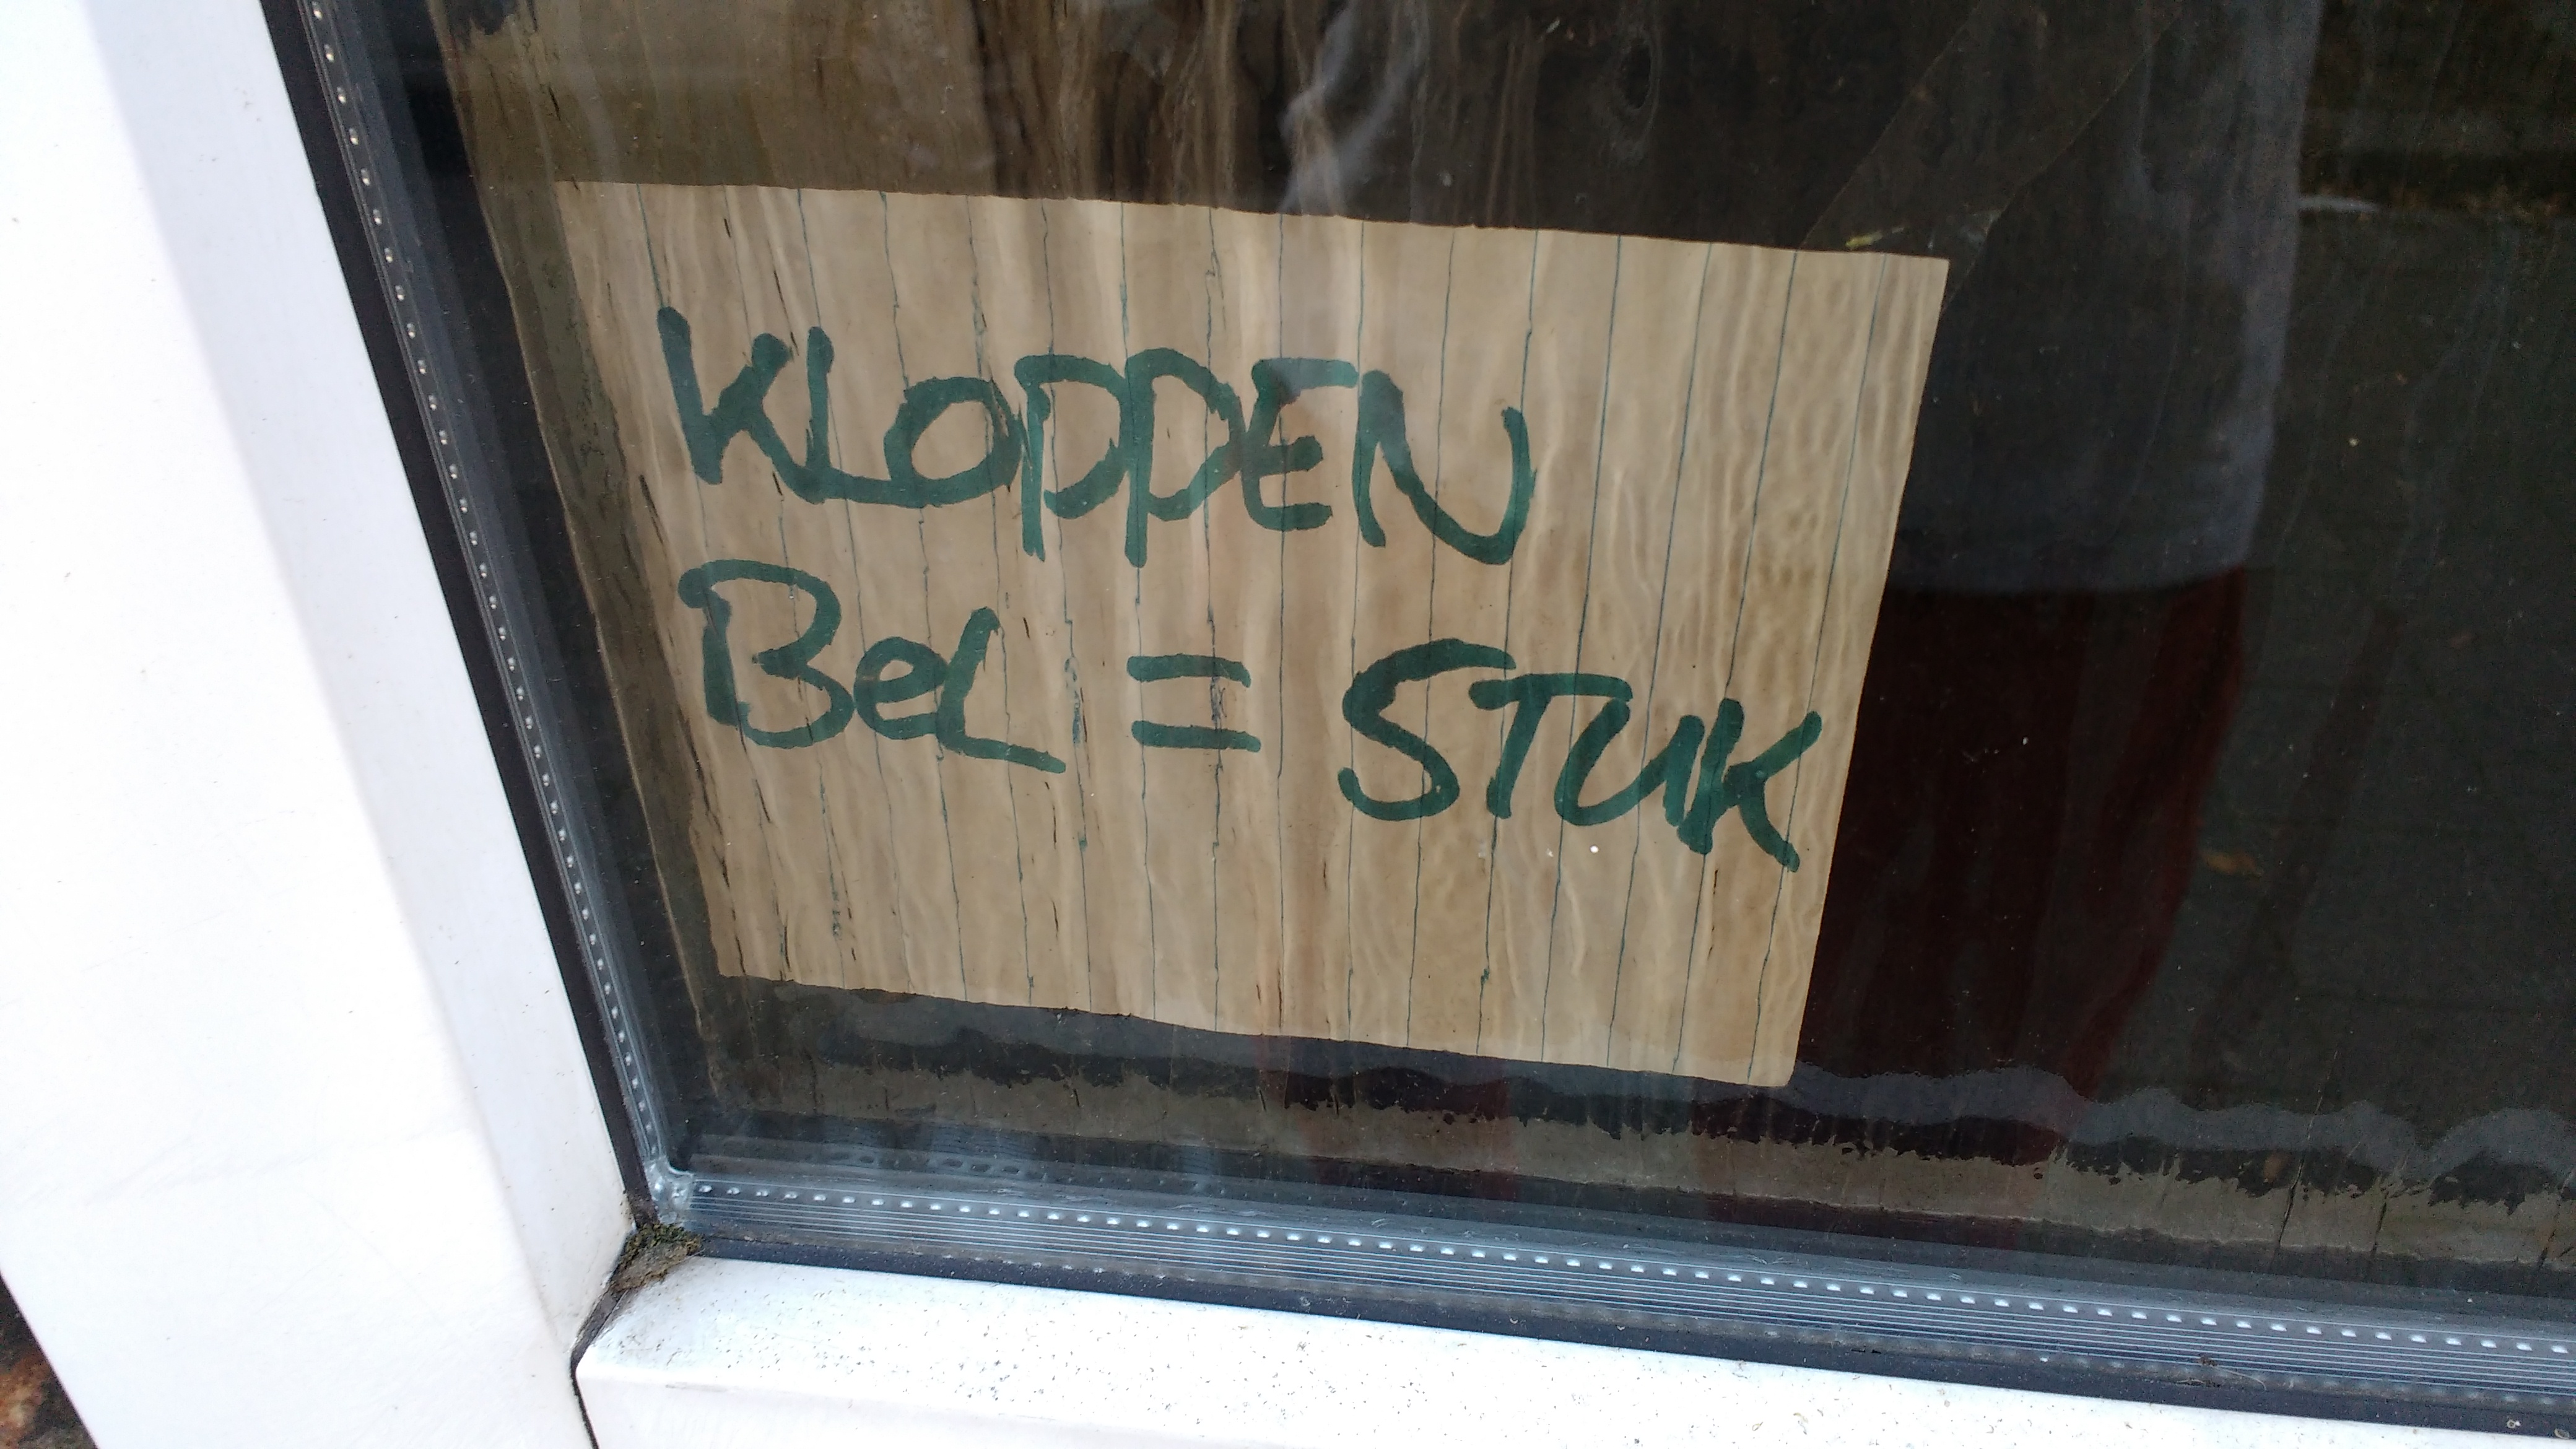 KLOPPEN
BeL = STUK